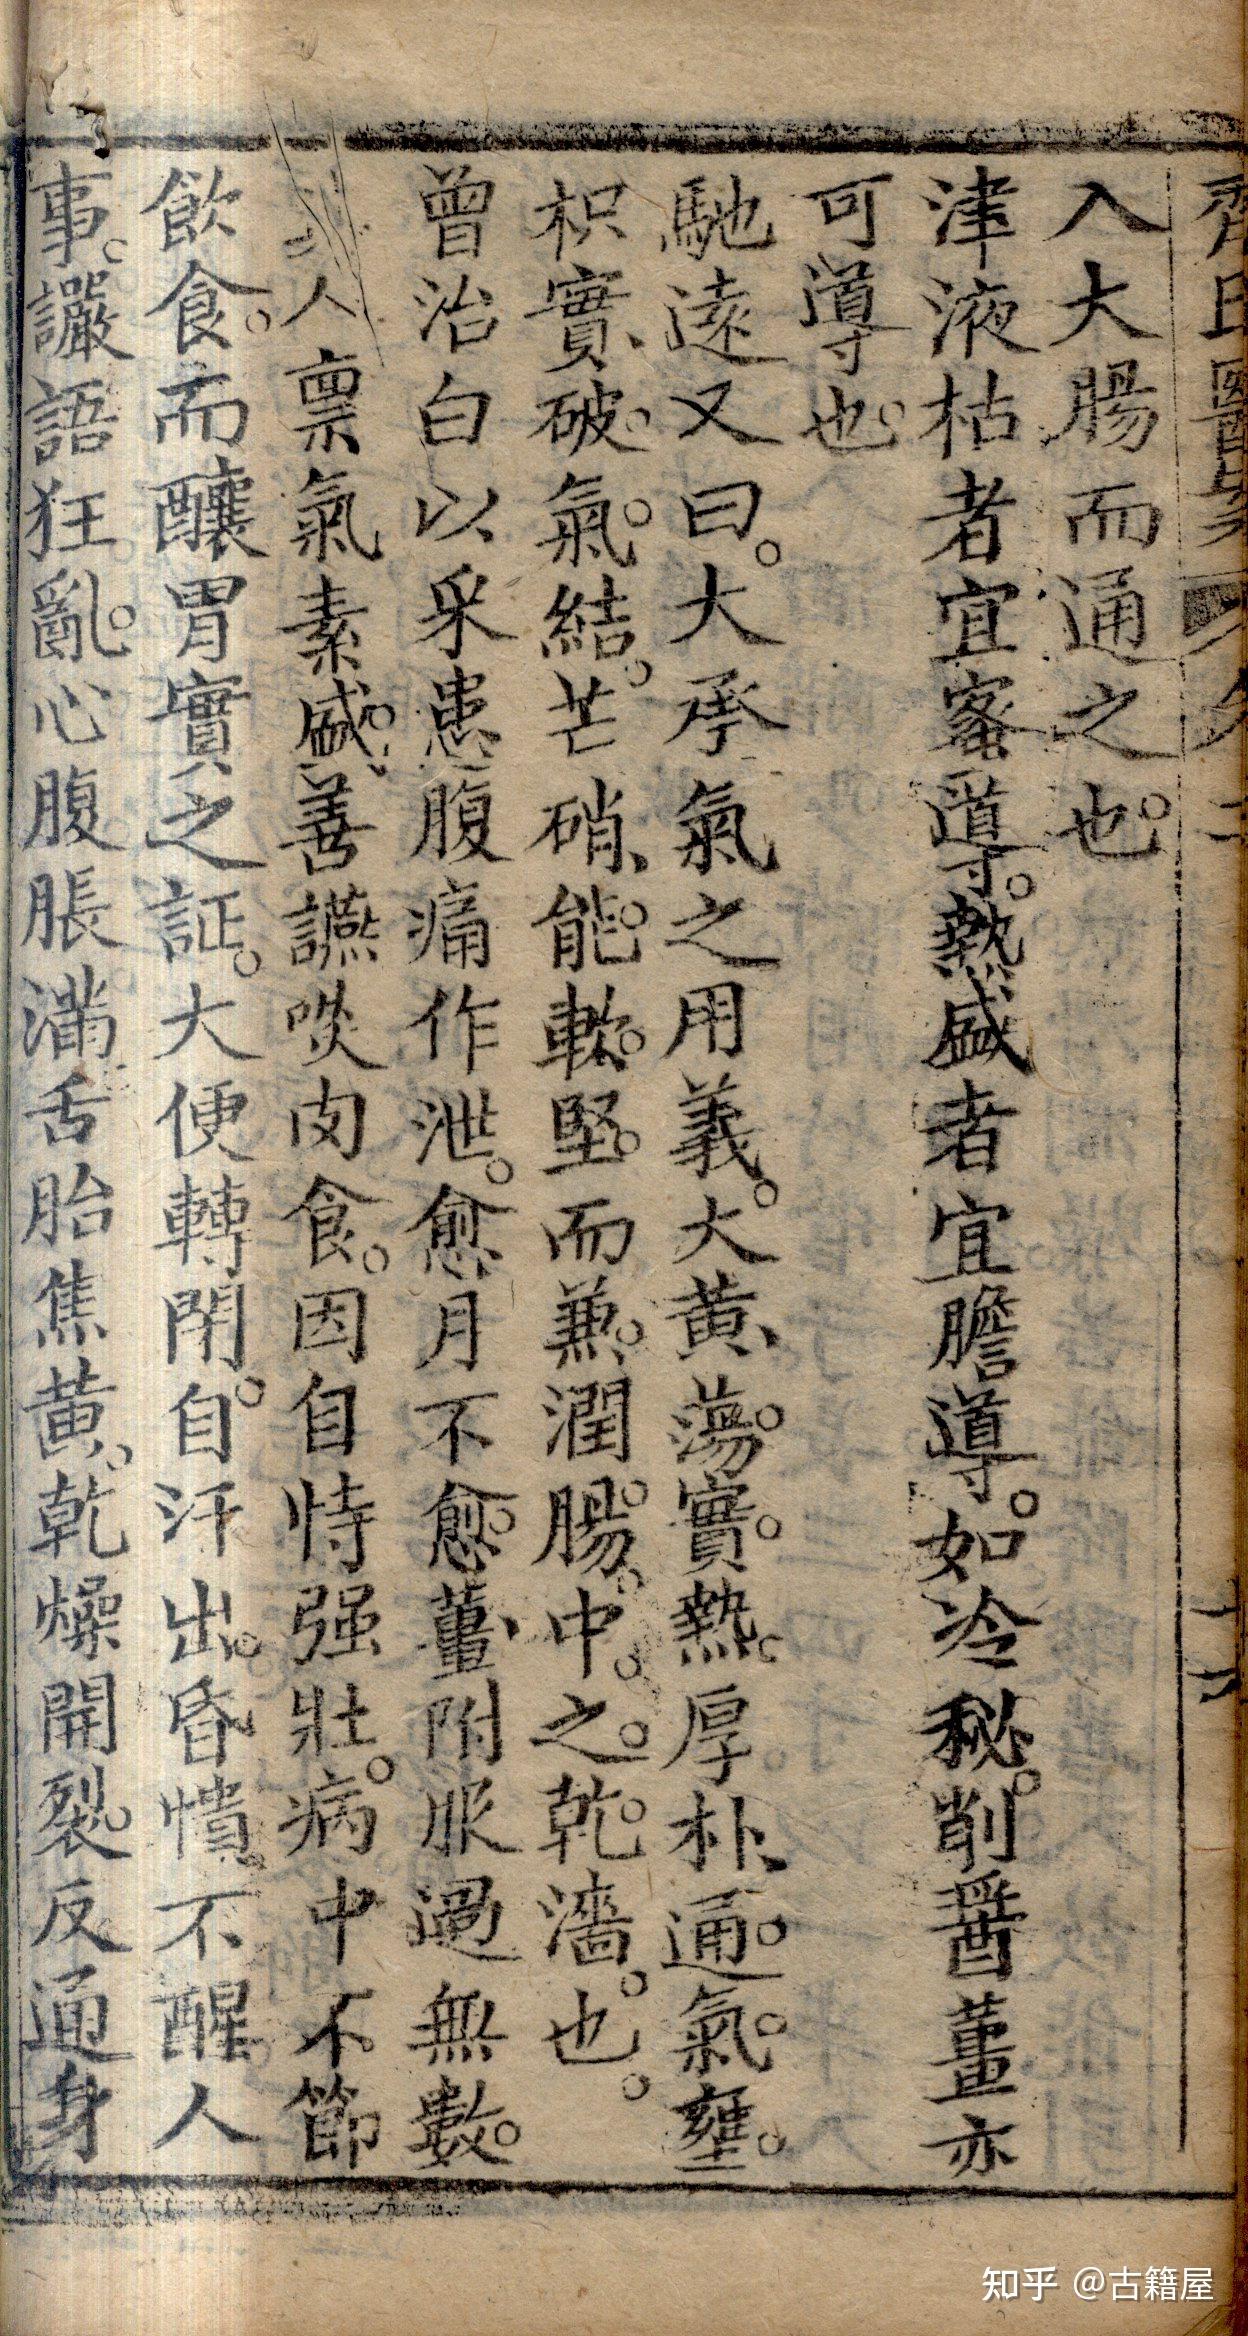 齊氏醫案
入大腸而通之也
津液枯者宜蜜導熱盛者宜膽導如冷秘削醬薑亦
可導也
馳遠又曰大承氣之用義大黃蕩實熱厚朴通氣壅
枳實破氣結芒硝能軟堅而兼潤腸中之乾濇也
曾治白以采患腹痛作泄愈月不愈薑附服過無數
人禀氣素盛善讌啖肉食因自恃强壯病中不節
飲食而釀胃實之証大便轉閉自汗出昏憒不醒人
事讝語狂亂心腹脹滿舌胎焦黃乾燥開裂反通身
知乎 @古籍屋